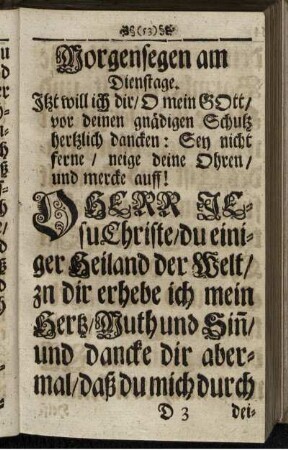 (53)
Morgensegen am
Dienstage.
Itzt will ich dir/ O mein GOtt/
vor deinen gnädigen Schutz
hertzlich dancken: Sey nicht
ferne/ neige deine Ohren/
und mercke auff!
O HERR JE-
su Christe/ du eini-
ger Heiland der Welt/
zn dir erhebe ich mein
Hertz/ Muth und Siñ/
und dancke dir aber-
mal/ daß du mich durch
D 3 dei-